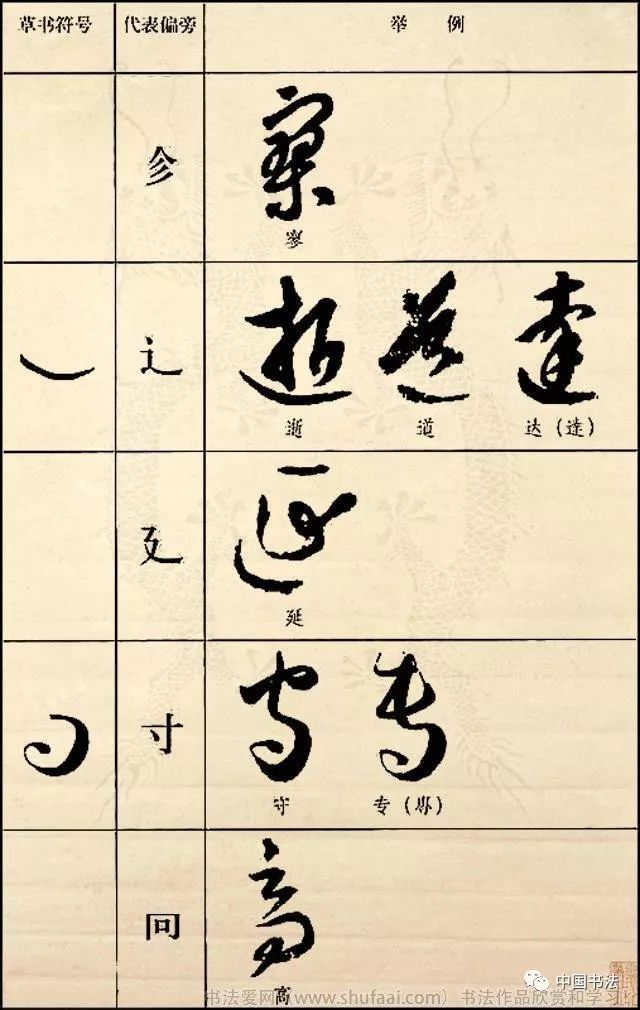 草书符号 代表偏旁 举例
寥
寥
辶
逝 道 达
逝 道 达(達)
廴
延
延
寸
守 专
守 专(專)
高
高
中国书法
书法爱网(www.shufaai.com) 书法作品欣赏和学习